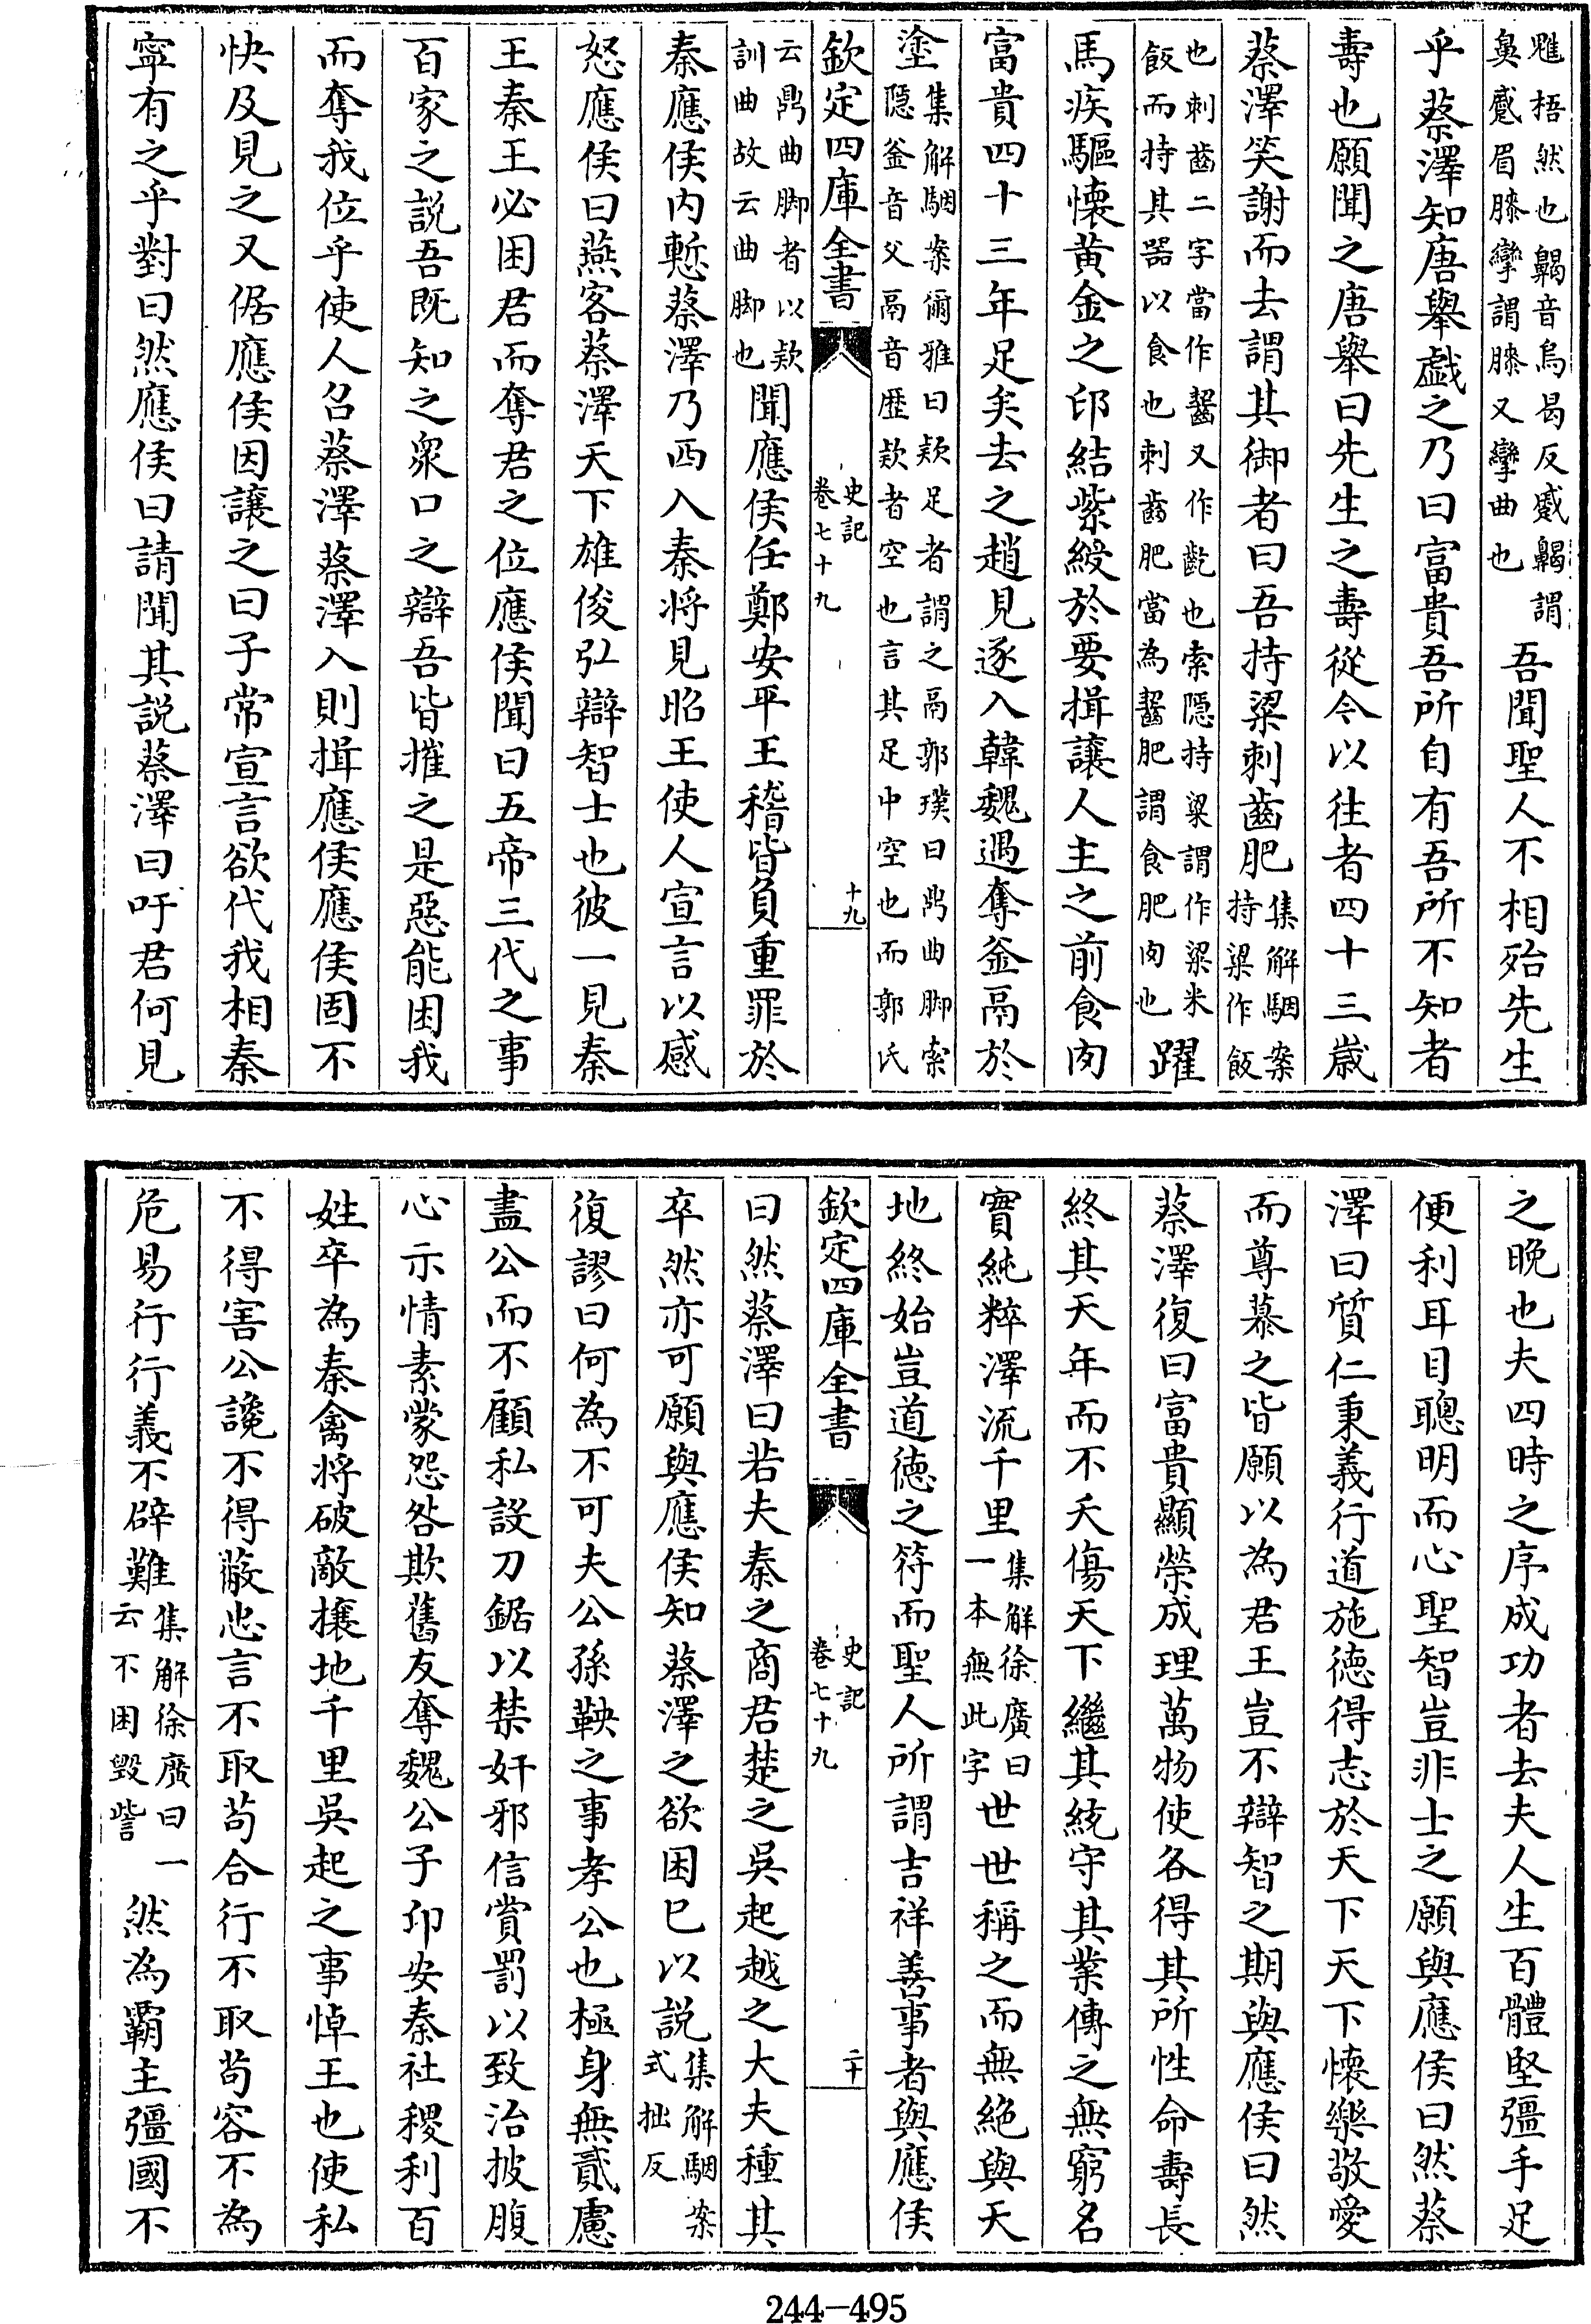 魋梧然也齃音烏曷反蹙齃謂鼻蹙眉膝攣謂膝又攣曲也吾聞聖人不相殆先生
乎蔡澤知唐舉戲之乃曰富貴吾所自有吾所不知者
壽也願聞之唐舉曰先生之壽從今以往者四十三歲
蔡澤笑謝而去謂其御者曰吾持粱刺齒肥集解駰案持粱作飯
也刺齒二字當作齧又作齕也索隱持粱謂作粱米飯而持其器以食也刺齒肥當為齧肥謂食肥肉也躍
馬疾驅懷黄金之印結紫綬於要揖讓人主之前食肉
富貴四十三年足矣去之趙見逐入韓魏遇奪釜鬲於
塗集解駰案爾雅曰款足者謂之鬲郭璞曰鼎曲脚索隱釜音父鬲音歷款者空也言其足中空也而郭氏
欽定四庫全書 史記卷七十九 十九
云鼎曲脚者以款訓曲故云曲脚也聞應侯任鄭安平王稽皆負重罪於
秦應侯内慙蔡澤乃西入秦将見昭王使人宣言以感
怒應侯曰燕客蔡澤天下雄俊弘辯智士也彼一見秦
王秦王必困君而奪君之位應侯聞曰五帝三代之事
百家之說吾既知之衆口之辯吾皆摧之是惡能困我
而奪我位乎使人召蔡澤蔡澤入則揖應侯應侯固不
快及見之又倨應侯因讓之曰子常宣言欲代我相秦
寧有之乎對曰然應侯曰請聞其説蔡澤曰吁君何見
之晚也夫四時之序成功者去夫人生百體堅彊手足
便利耳目聰明而心聖智豈非士之願與應侯曰然蔡
澤曰質仁秉義行道施德得志於天下天下懷樂敬愛
而尊慕之皆願以為君王豈不辯智之期與應侯曰然
蔡澤復曰富貴顯榮成理萬物使各得其所性命壽長
終其天年而不夭傷天下繼其統守其業傳之無窮名
實純粹澤流千里集解徐廣曰一本無此字世世稱之而無絶與天
地終始豈道德之符而聖人所謂吉祥善事者與應侯
欽定四庫全書 史記卷七十九 二十
曰然蔡澤曰若夫秦之商君楚之吳起越之大夫種其
卒然亦可願與應侯知蔡澤之欲困已以説集解駰案式拙反
復謬曰何為不可夫公孫鞅之事孝公也極身無貳慮
盡公而不顧私設刀鋸以禁奸邪信賞罰以致治披腹
心示情素蒙怨咎欺舊友奪魏公子卬安秦社稷利百
姓卒為秦禽將破敵攘地千里吳起之事悼王也使私
不得害公讒不得蔽忠言不取苟合行不取苟容不為
危易行行義不辟難集解徐廣曰一云不困毁訾然為霸主彊國不
244-495